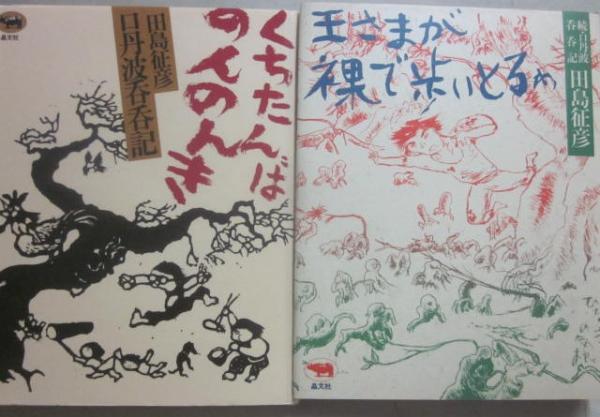 晶文社
田島征彦
口丹波呑呑記
くちたんば
のんのんき
王さまが
裸で歩いとるわ
続口丹波
呑呑記
田島征彦
晶文社